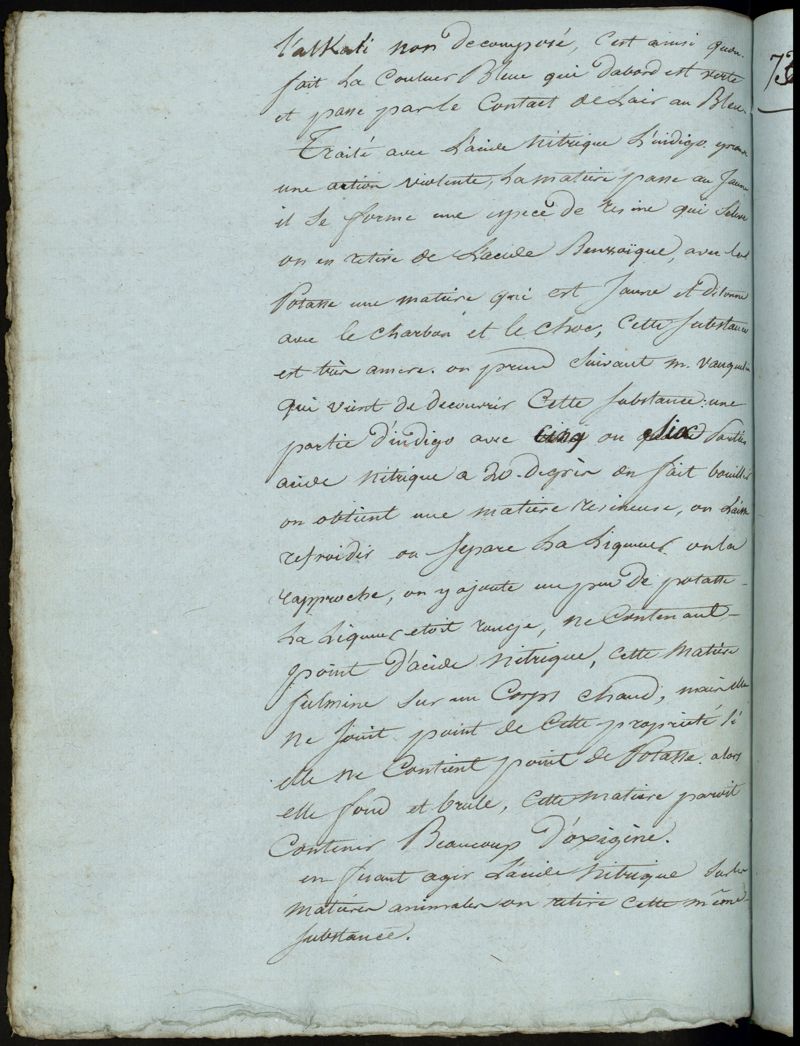 l'alkali non decomposé, c'est ainsi qu'on
fait la Couluer Bleue qui d'abord est verte
et passe par le Contact de l'air au Bleu.
Traité avec l'acide nitrique l'indigo
une action violente, la matiere passe au Jaune
il se forme une espece de resine qui
on en retire de l'acide Benzoïque, avec la
Potasse une matiere qui est Jaune et détonne
avec le charbon et le choc, Cette substance
est très amere. on prend suivant m. vauquelin
qui vient de decouvrir Cette substance: une
partie d'indigo avec cinq ou six Parties
acide nitrique a 20. degrés on fait bouillir
on obtient une matiere resineuse, on laisse
refroidir on separe la liqueur on la
rapproche, on y ajoute un peu de potasse
La Liqueur etoit rouge, ne Contenant
point d'acide nitrique, Cette matiere
fulmine sur un Corps chaud, mais elle
ne jouit point de Cette propriété si
elle ne Contient point de Potasse. alors
elle fond et brule, Cette matiere paroit
Contenir Beaucoup d'oxigène.
en fesant agir l'acide nitrique sur les
matieres animales on retire cette même
substance.
73